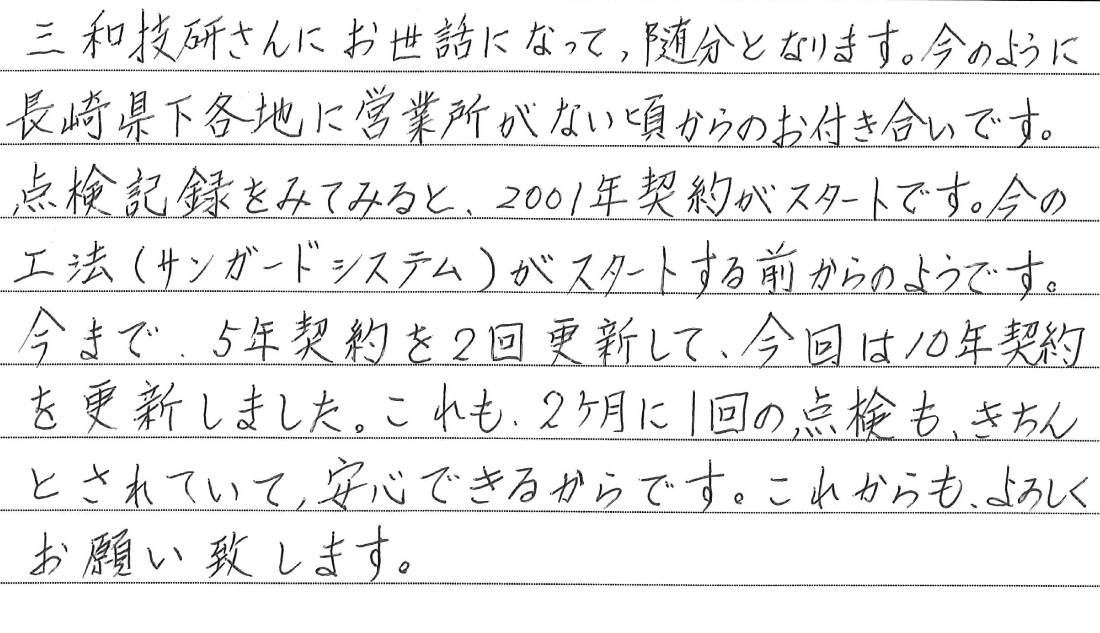 三和技研さんにお世話になって,随分となります。今のように
長崎県下各地に営業所がない頃からのお付き合いです。
点検記録をみてみると、2001年契約がスタートです。今の
工法(サンガードシステム)がスタートする前からのようです。
今まで、5年契約を2回更新して、今回は10年契約
を更新しました。これも、2ヶ月に1回の点検も、きちん
とされていて,安心できるからです。これからも、よろしく
お願い致します。